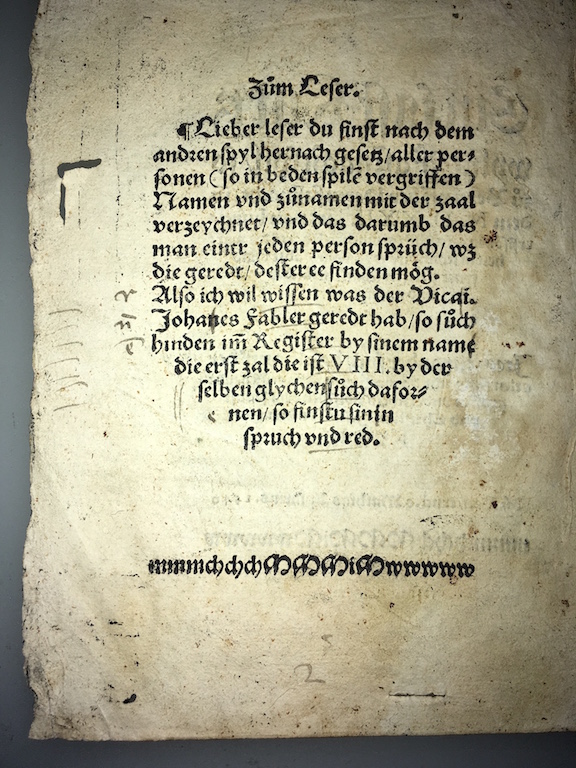 Zům Leser.
¶ Lieber leser du finst nach dem
andren spyl hernach gesetz/aller per⸗
sonen (so in beden spilē vergriffen)
Namen vnd zůnamen mit der zaal
verzeychnet/vnd das darumb das
man einer jeden person sprüch/wz
die geredt/dester ee finden mög.
Also ich wil wissen was der Vicai.
Johañes Fabler geredt hab/so sůch
hinden im̄ Register by sinem name
die erst zal die ist VIII. by der
selben glychen sůch dafor⸗
nen/so finstu sinin
spruch vnd red.
2